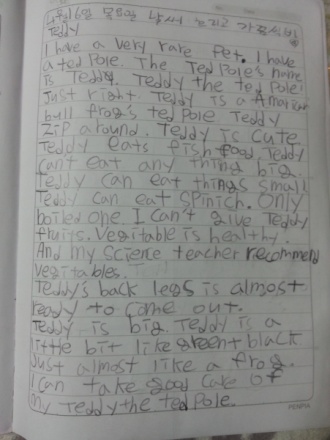 4월16일 목요일 날씨: 흐리고 가끔씩 비
Teddy
I have a very rare Pet. I have
a ted Pole. The Ted Pole's name
is Teddy. Teddy the ted Pole!
Just right, Teddy is a American
bull frog's ted Pole Teddy
Zip around. Teddy is cute
Teddy eats fish food, Teddy
can't eat any thing big.
Teddy can eat things small
Teddy can eat spinich. Only
boiled one. I can't give Teddy
fruits. Vegitable is healthy.
And my science teacher recommend
vegitables.
Teddy's back legs is almost
ready to come out.
Teddy is big. Teddy is a
little bit like green black
Just almost like a frog.
I can take good care of
my Teddy the ted Pole.